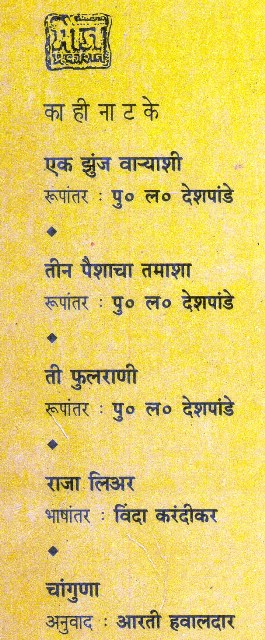 मौज
प्रकाशन
का ही ना ट के
एक झुंज वाऱ्याशी
रूपांतर : पु० ल० देशपांडे
तीन पैशाचा तमाशा
रूपांतर : पु० ल० देशपांडे
ती फुलराणी
रूपांतर : पु० ल० देशपांडे
राजा लिअर
भाषांतर : विंदा करंदीकर
चांगुणा
अनुवाद : आरती हवालदार